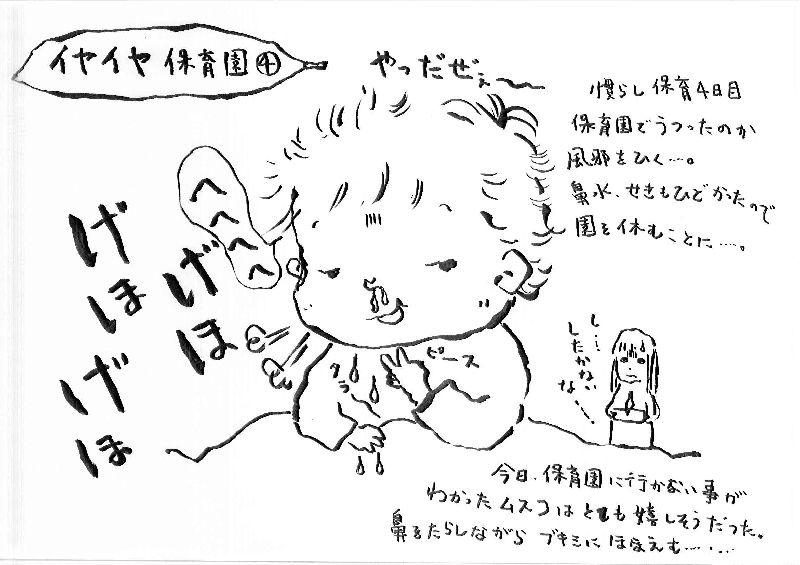 イヤイヤ保育園④
やっだぜぇ〜
慣らし保育4日目
保育園でうつったのか
風邪をひく…。
鼻水、せきもひどかったので
園を休むことに…。
へへへへ
げほげほ
げほ
ピース
クラ
し…
したかない
な…
今日、保育園に行かない事が
わかったムスコはとても嬉しそうだった。
鼻をたらしながら ブキミにほほえむ……